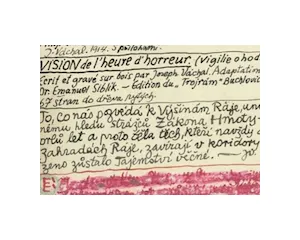 J. Váchal. 1914. S přílohami.
VISION de l'heure d'horreur. (Vigilie o hod
Ecrit et gravé sur bois par Joseph Váchal. Adaptation
Dr. Emanuel Siblik. – Edition du „Trojrám" Buchlovic
67 stran do dřeva rytých.
To, co nás povědá k Výšinám Ráje, un
nému hledu strážců Zákona Hmoty
orlů let a proto čela těch, kteří navidy
Zahradách Ráje, zavírají v koridory
ženo zůstalo Tajemství věčné. — Jv.